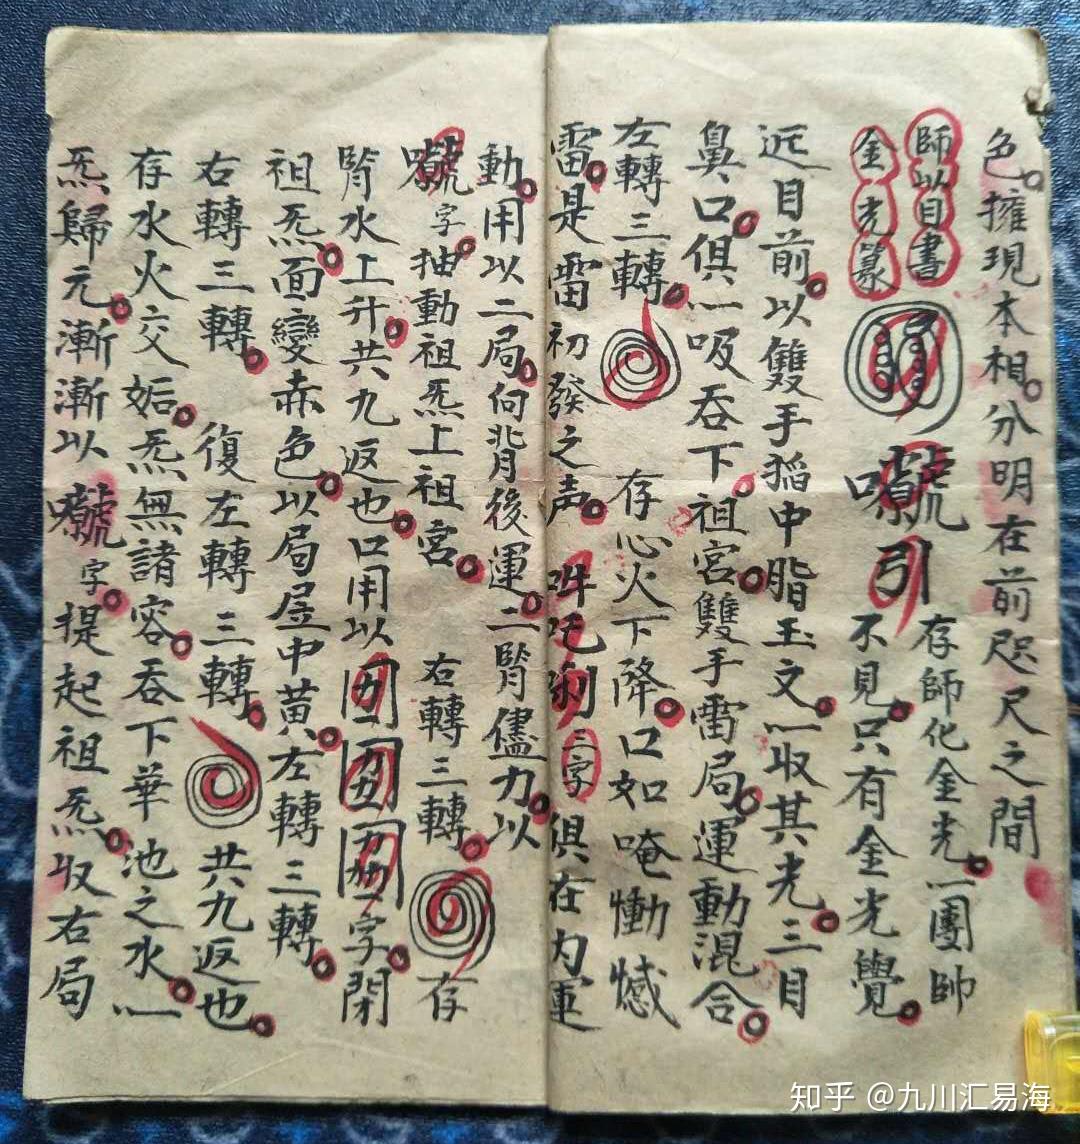 色。擁現本相。分明在前咫尺之間
師以目書
金光篆
引
存師化金光。一團帥
不見。只有金光覺。
近目前。以雙手搯中脂玉文。一收其光。三目
鼻口。俱一吸吞下。祖宮。雙手雷局。運動混合。
左轉三轉。
存心火下降。口如唵慟憾
雷。是雷初發之声。吽吒唎三字俱在内運
動。用以二局。向背後運。二腎儘力。以
字。抽動祖炁上祖宮。
右轉三轉。
存
腎水上升。共九返也。口用以
字。閉
祖炁。面變赤色。以局屋中黃。左轉三轉。
右轉三轉。復左轉三轉。
共九返也。
存水火交姤。炁無諸容。吞下華池之水。一
炁歸元。漸漸以
字。提起祖炁。收右局
知乎 @九川汇易海